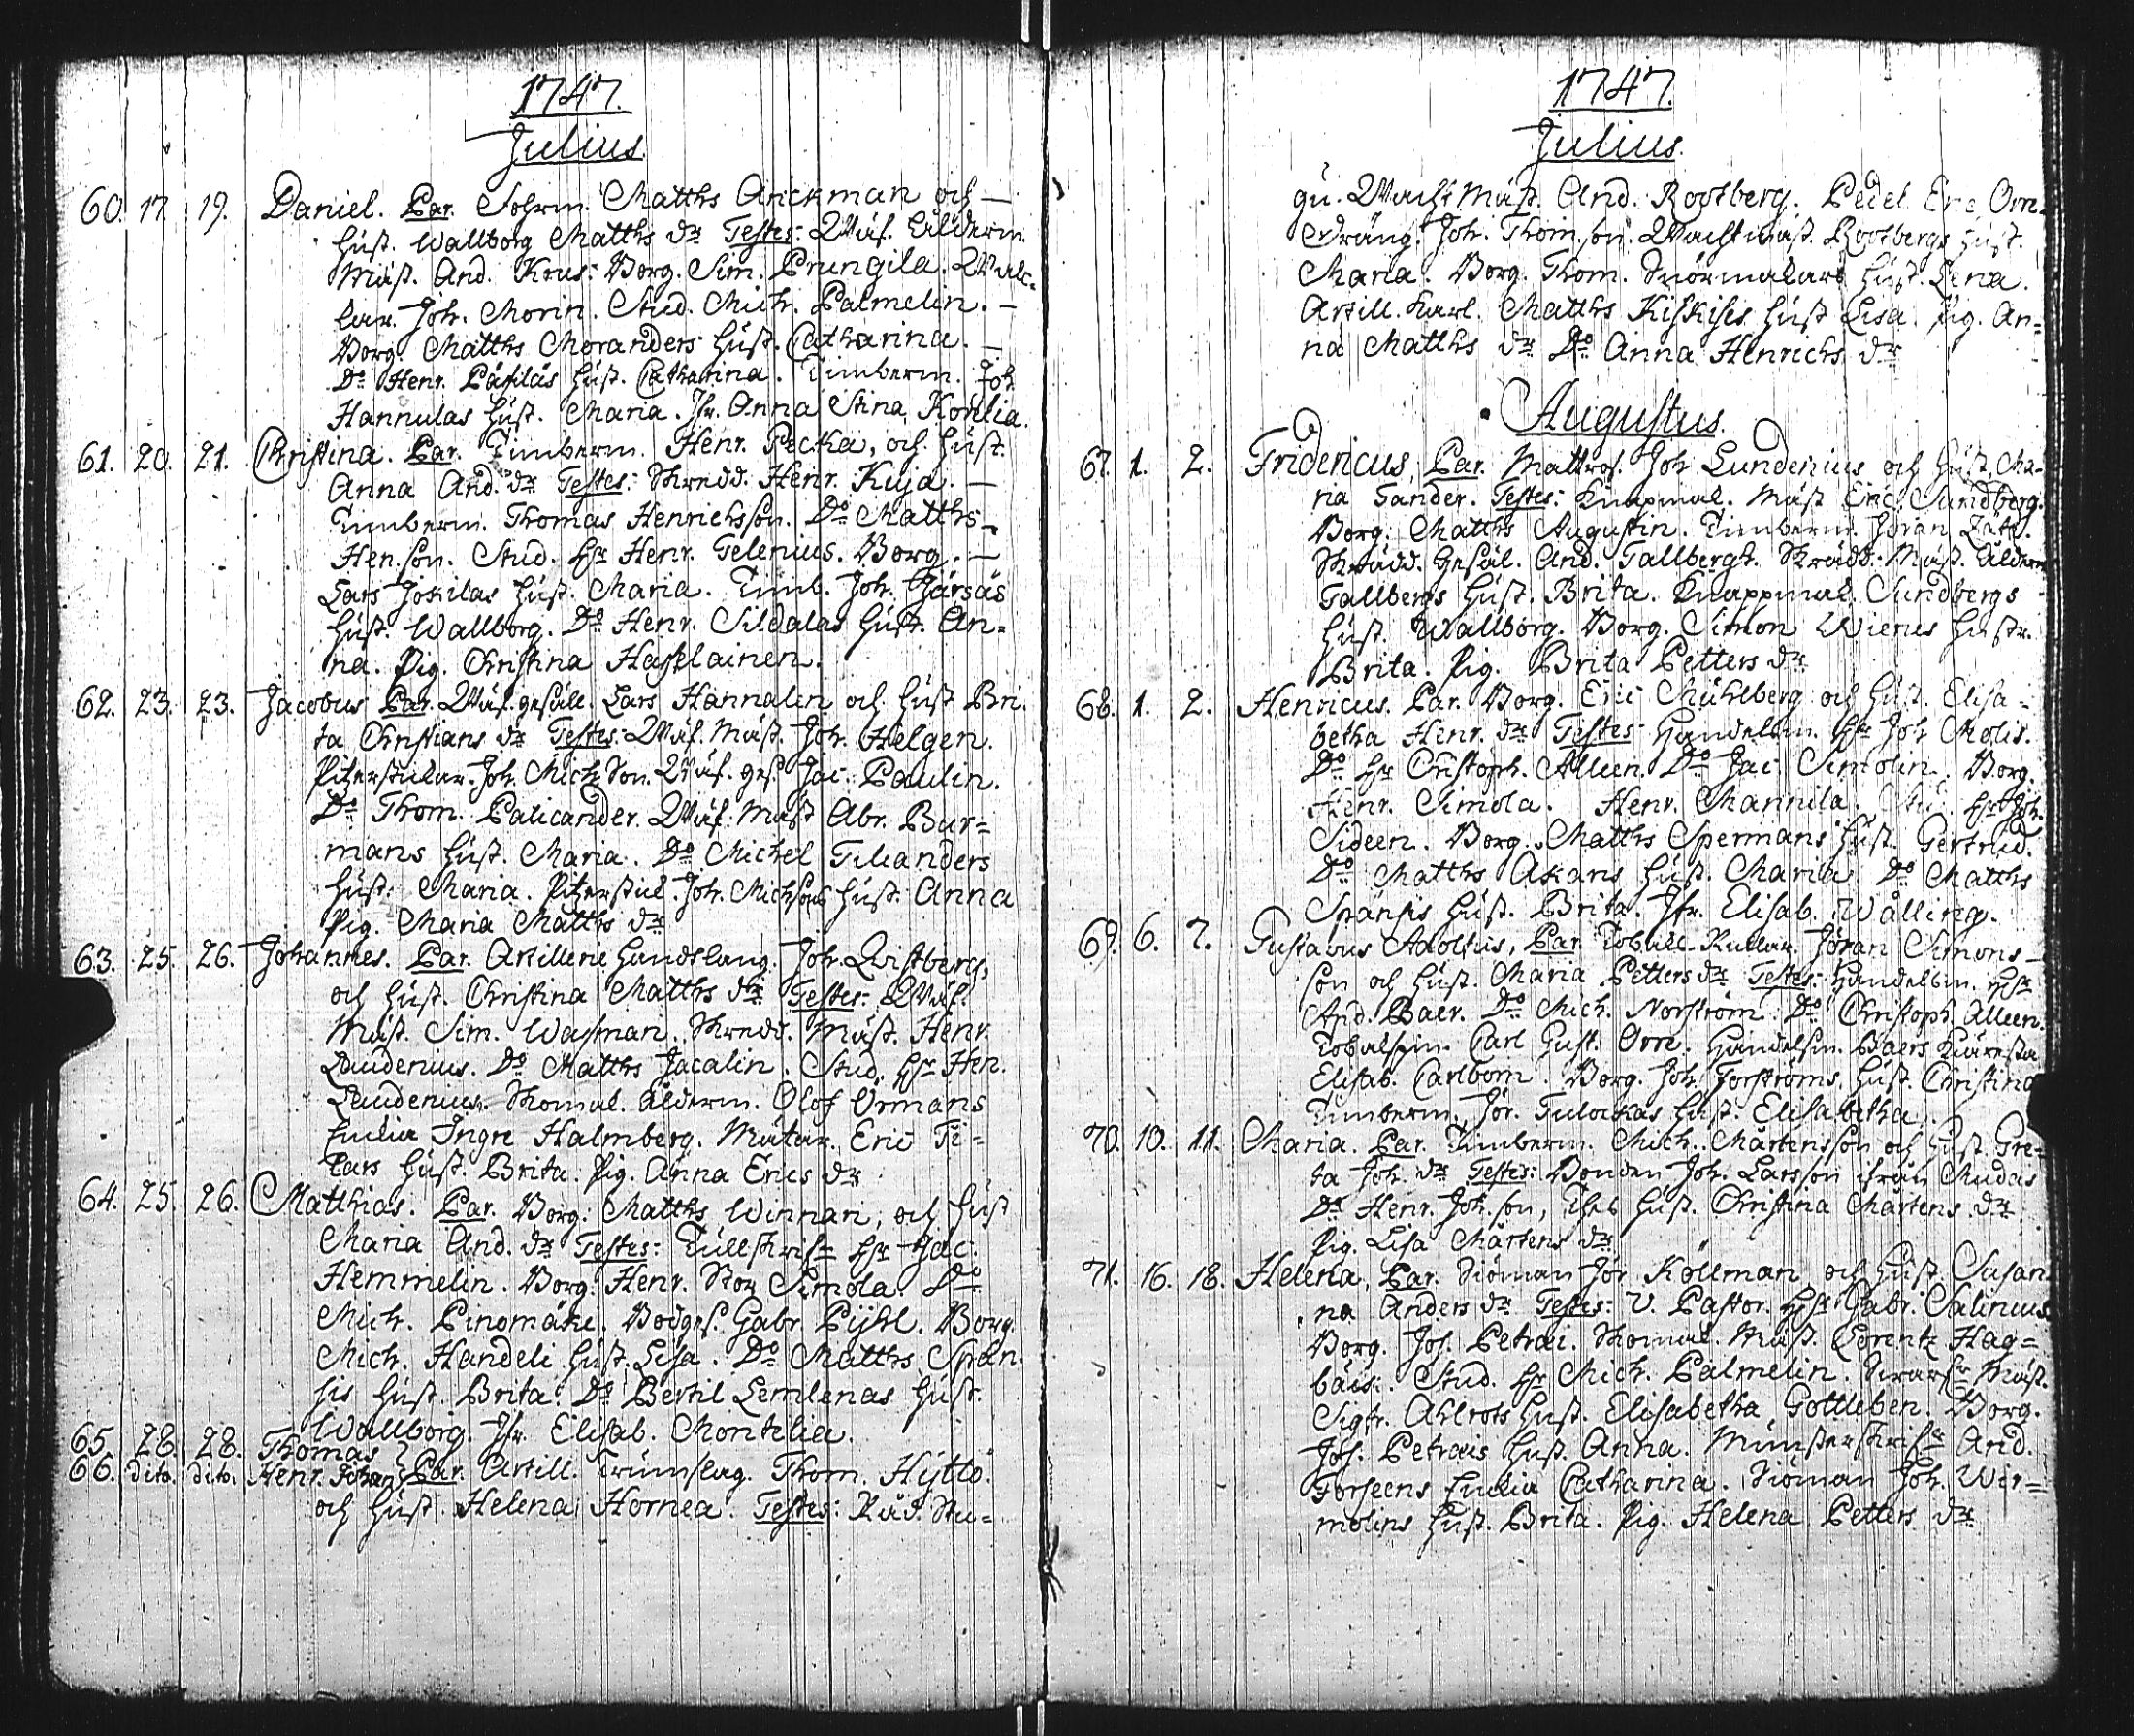 1747.
Julius.
60. 17. 19. Daniel. Par. Sohrm. Matths Arickman och —
Hust. Wallborg Matths dr Testes: Wäf. Ålderm.
Mäst. And. Krus: Borg. Sim. Prungila.
lar. Joh. Morin. Stud. Mich. Palmelin. —
Borg. Matths Moranders Hust. Catharina. —
Do Henr. Päkiläs Hust. Catharina. Timberm. Joh.
Hannulas Hust. Maria. Jfr. Anna Stina Konlia.
61. 20. 21. Christina. Par. Timberm. Henr. Pecka, och Hust.
Anna And. dr Testes: Skredd. Henr. Keija. —
Timberm. Thomas Henrichsson. Do Matths
Hen.son. Stud. Hr Henr. Gelenius. Borg. —
Lars Joskilas Hust. Maria. Timb. Joh. Järsäs
Hust. Wallborg. Do Henr. Sildalas Hust. An=
na. Pig. Christina Hasselainen.
62. 23. 23. Jacobus Par. Wäf. gesäll. Lars Hannalen och Hust Bri
ta Christians dr Testes: Wäf. Mäst. Joh. Helgen.
Joh. Mich Son. Wäf. ges. Jac. Paulin.
Do Thom. Palicander. Wäf. Mäst Abr. Bur=
mans Hust. Maria. Do Michel Tilianders
Hust. Maria. Joh. Michsons Hust. Anna
Pig. Maria Matths dr
63. 25. 26. Johannes. Par. Artillerie Handtlang. Joh. Qvistberg,
och Hust. Christina Matths dr Testes: Wäf.
Mäst. Sim. Wasman. Skredd. Mäst. Henr.
Laudenius. Do Matths Jacalin. Stud. Hr Hen.
Laudenius. Skomak. Ålderm. Olof Örmans
Enkia Ingre Halmberg. Mätar. Eric Ti=
lars Hust. Brita. Pig. Anna Erics dr
64. 25. 26. Matthias. Par. Borg. Matths Winnari, och Hust
Maria And. dr Testes: Tullskrifr Hr Jac.
Hemmelin. Borg. Henr. Stor Simola. Do
Mich. Pinomäki. Bodges. Gabr. Pijhl. Borg.
Mich. Handeli Hust. Lisa. Do Matths Spän
sis Hust. Brita. Do Bertil Lemlenas Hust.
Wallborg. Jfr. Elisab. Montelia.
65. 28. 28. Thomas
66. dito. dito. Henr. Johan Par. Artill. Trumslag. Thom. Hyttö.
och Hust. Helena Hornea. Testes: Råd. Stu=
1747.
Julius.
gu. Wacht Mäst. And. Rootberg. Pedel Eric Orn.
Dräng. Joh. Thom.son. Wachtmäst. Rootbergs Hust.
Maria. Borg. Thom. Hust. Lena.
Artill. Karl. Matths Kiskises Hust Lisa. Pig. An=
na Matths dr Do Anna Henrichs dr
Augustus.
67. 1. 2. Fridericus, Par. Mattros. Joh Lundenius och Hust. Ma-
ria Tander. Testes: Knapmak. Mäst Eric Sundberg.
Borg. Matths Augustin. Timberm. Jöran Zakr.
Skrädd. Gesäl. And. Tallbergt. Skrädd. Mäst. Ålderm
Tallbergs Hust. Brita. Knappmak. Sundbergs
Hust. Wallborg. Borg. Simon Wienes Hustr.
Brita. Pig. Brita Petters dr
68. 1. 2. Henricus. Par. Borg. Eric Muhlberg och Hust. Elisa-
betha Henr. dr Testes: Handelsm. Hr Joh Molis.
Do Hr Christoph. Alleen. Do Jac. Simolin. Borg.
Henr. Simola. Henr. Mannila. Hr Joh.
Sideen. Borg. Matths Spermans Hust. Gertrud.
Do Matths Akans Hust. Maria. Do Matths
Spänsis Hust. Brita. Jfr. Elisab. Wålling.
69. 6. 7. Gustavus Adolfus, Par. Jöran Simons-
son och Hust. Maria Petters dr Testes: Handelsm. Hr
And. Baer. Do Mich. Norström. Do Christoph. Alleen.
Carl Gust. Orre. Handelsm. Baers Kiäresta
Elisab. Carlbom. Borg. Joh. Forströms Hust. Christina
Timberm. Jör. Tulockas Hust. Elisabetha.
70. 10. 11. Maria. Par. Timberm. Mich. Mårtensson och Hust. Gre=
ta Joh. dr Testes: Bonden Joh. Larsson ifrån Mudas
Do Henr. Joh.son, Hust. Christina Mårtens dr
Pig. Lisa Mårtens dr
71. 16. 18. Helena, Par. Siöman Jör. Köllman och Hust. Susan
na Anders dr Testes: V. Pastor. Hr Gabr. Salinius
Borg. Jos. Petrai. Skomak. Mäst. Lorentz Hag=
bäck. Stud. Hr Mich. Palmelin. Mäst.
Sigfr. Ahlrots Hust. Elisabetha Gottleben. Borg.
Jos. Petrais Hust. Anna. Munsterskrifr And.
Forseens Enkia Catharina. Siöman Joh. Wer=
molins Hust. Brita. Pig. Helena Petters dr